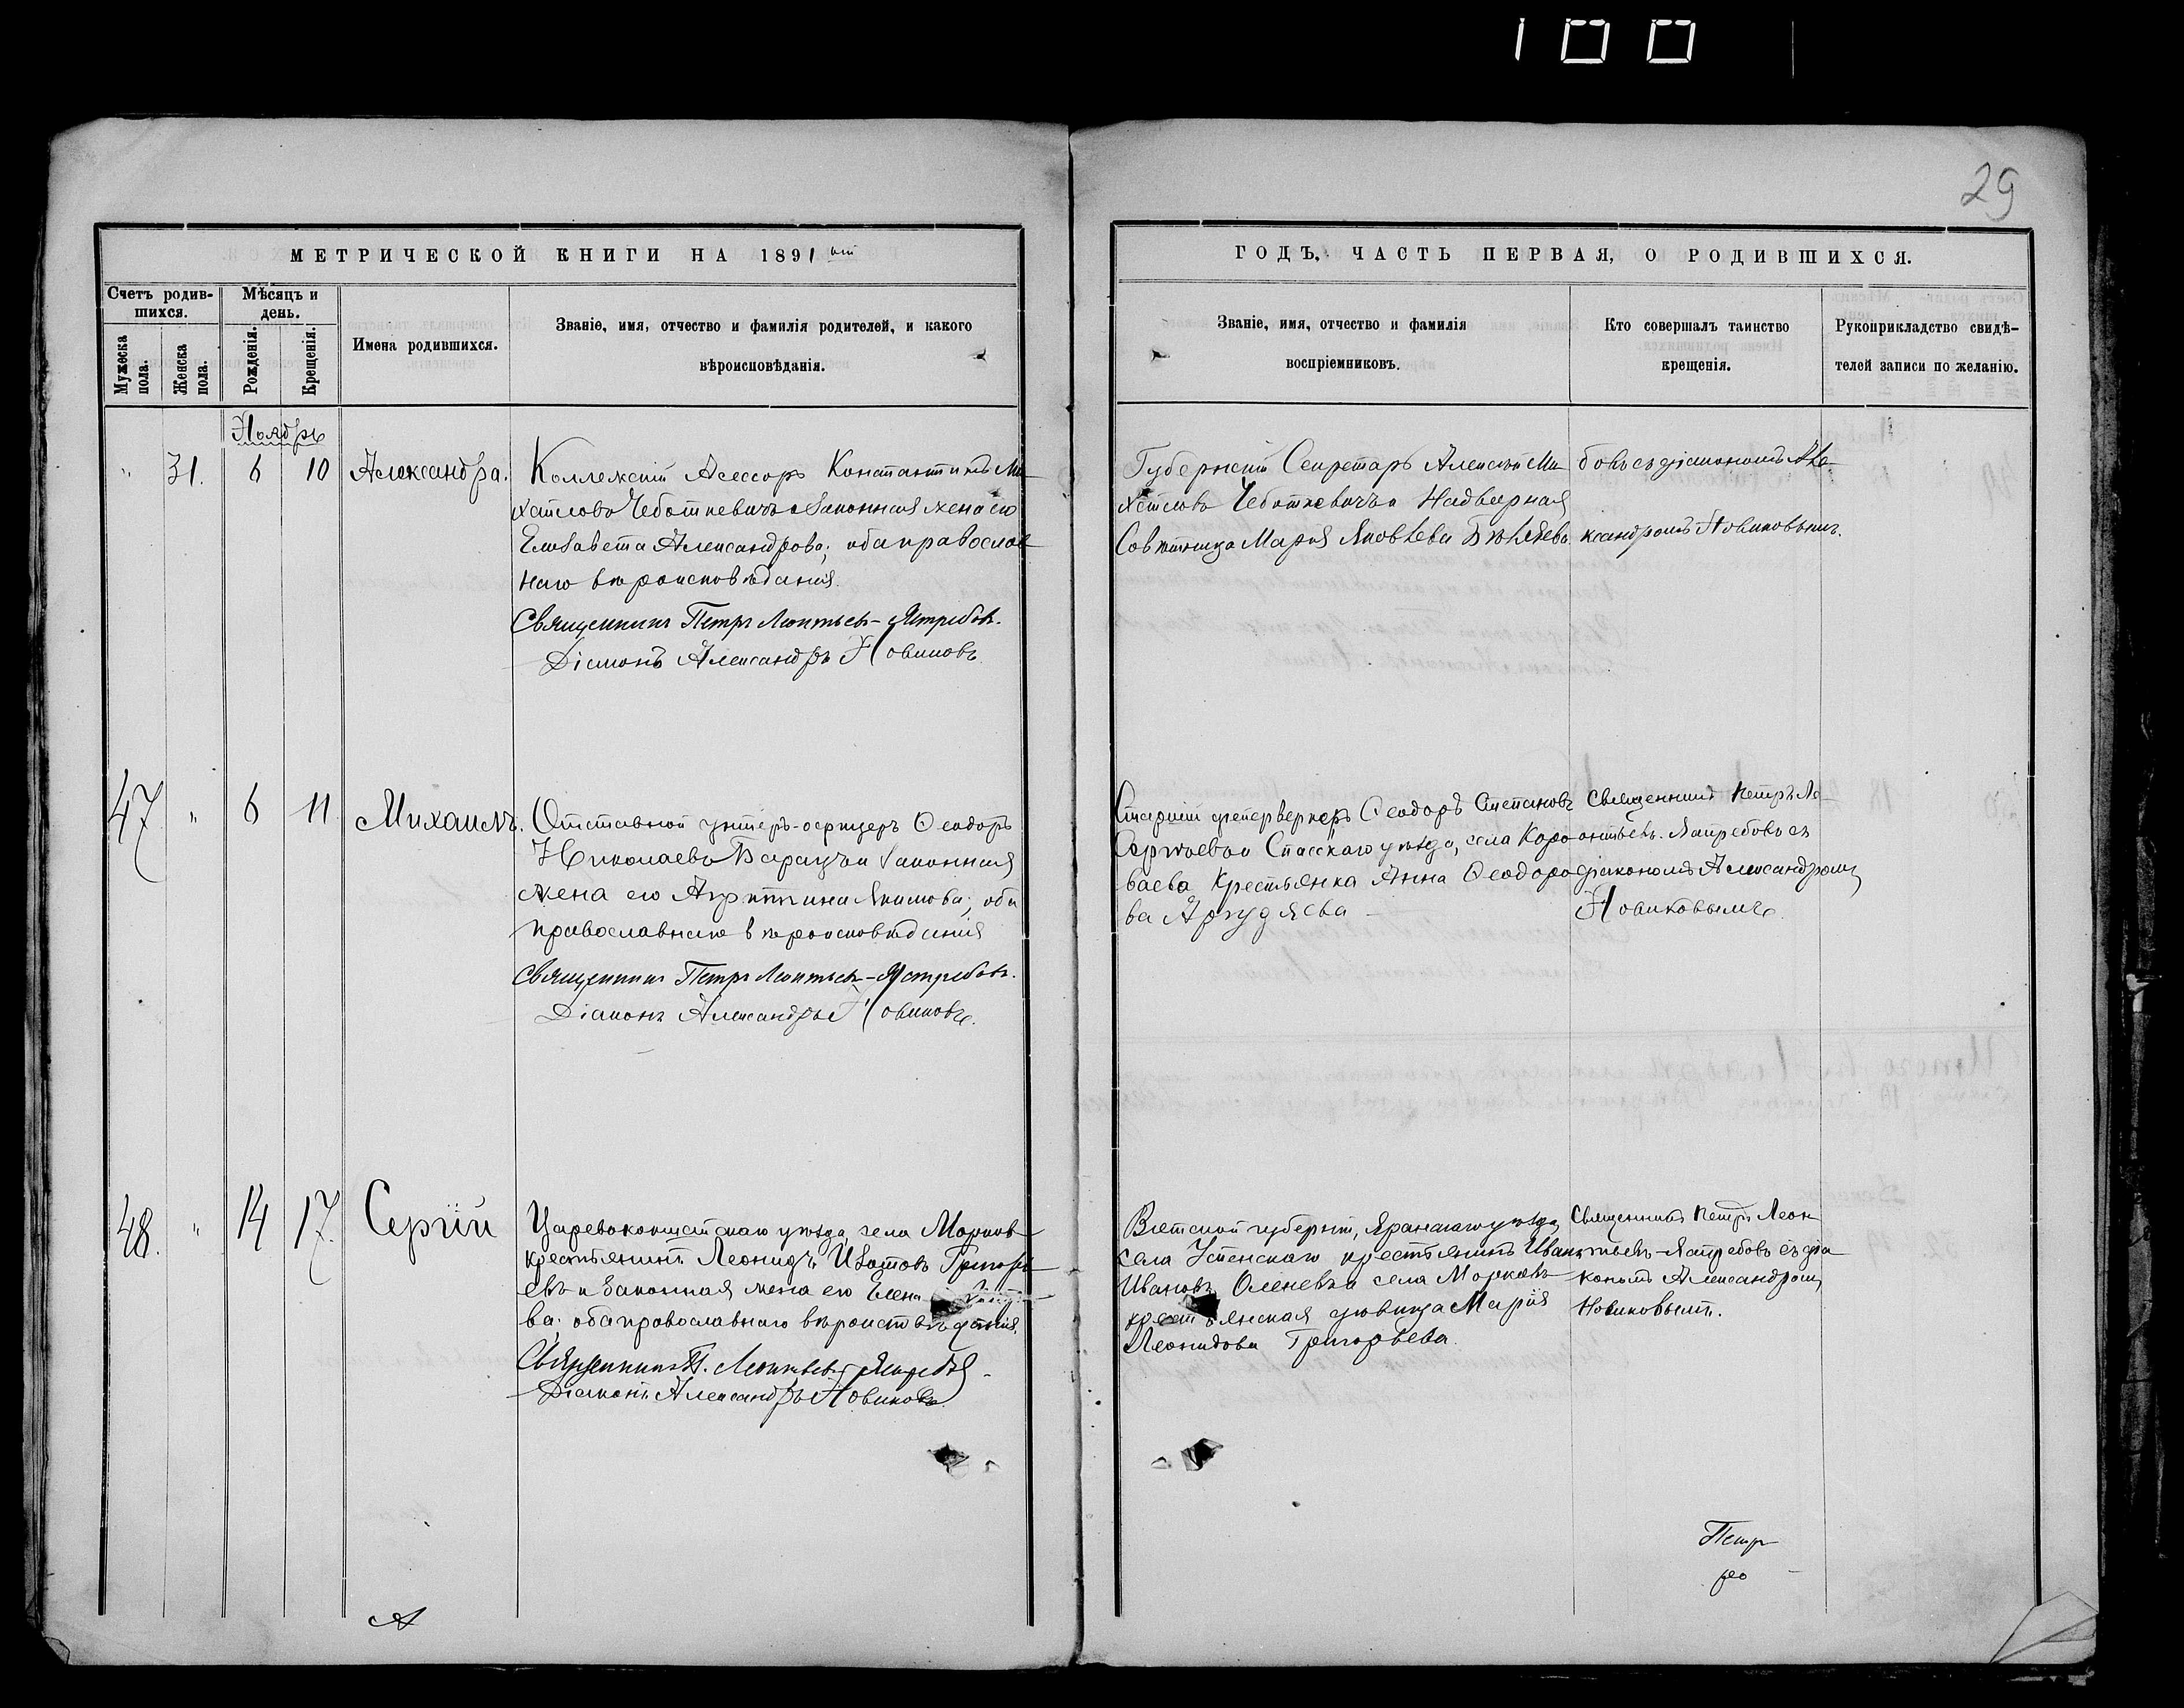 100
29
МЕТРИЧЕСКОЙ КНИГИ НА 1891 ый
ГОДЪ, ЧАСТЬ ПЕРВАЯ, О РОДИВШИХСЯ.
Счетъ родив-
шихся.
Мѣсяцъ и
день.
Мужеска
пола.
Женска
пола.
Рожденія.
Крещенія.
Имена родившихся.
Званіе, имя, отчество и фамилія родителей, и какого
вѣроисповѣданія.
Званіе, имя, отчество и фамилія
воспріемниковъ.
Кто совершалъ таинство
крещенія.
Рукоприкладство свидѣ-
телей записи по желанію.
Ноябрь
" 31. 6 10 Александра.
Коллежскій Асессоръ Константинъ Ми-
хайловъ Чеботкевичъ и законная жена его
Елизавета Александрова; оба православ-
наго вѣроисповѣданія.
Священникъ Петръ Леонтьевъ-Ястребовъ.
Діаконъ Александръ Новиковъ.
Губернскій Секретарь Алексѣй Ми-
хайловъ Чеботкевичъ и Надворная
Совѣтница Марія Яковлева Бѣляева.
бовъ съ діакономъ Але-
ксандромъ Новиковымъ.
47 " 6 11 Михаилъ.
Отставной унтеръ-офицеръ Ѳеодоръ
Николаевъ и законная
жена его Агриппина Якимова; оба
православнаго вѣроисповѣданія
Священникъ Петръ Леонтьевъ-Ястребовъ.
Діаконъ Александръ Новиковъ.
Старшій фейерверкеръ Ѳеодоръ Степановъ
Сергѣевъ и Спасскаго уѣзда, села Коро-
ваева крестьянка Анна Ѳеодоро-
ва
Священникъ Петръ Ле-
онтьевъ-Ястребовъ съ
діакономъ Александромъ
Новиковымъ.
48. " 14 17. Сергій
Царевококшайскаго уѣзда, села Морковъ
крестьянинъ Леонидъ Изотовъ Григорь-
евъ и законная жена его Елена
ва; оба православнаго вѣроисповѣданія.
Священникъ П. Леонтьевъ-Ястребовъ
Діаконъ Александръ Новиковъ
Вятской губерніи, Яранскаго уѣзда
села Успенскаго крестьянинъ Иванъ
Ивановъ Оленевъ и села Морковъ
крестьянская дѣвица Марія
Леонидова Григорьева.
Священникъ Петръ Леон-
тьевъ-Ястребовъ съ діа-
кономъ Александромъ
Новиковымъ.
Петр
рео
А